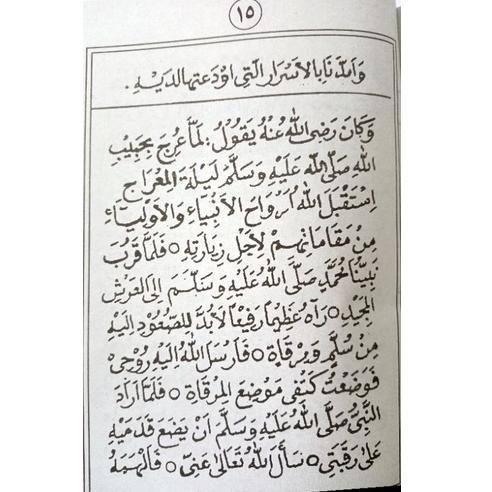 ١٥
وَاَمِدَّنَا بِالْاَسْرَارِ الَّتِي اَوْدَعْتَهَا لَدَيْهِ ۰
وَكَانَ رَضِيَ اللّٰهُ عَنْهُ يَقُوْلُ : لَمَّا عُرِجَ بِحَبِيْبِ
اللّٰهِ صَلَّى اللّٰهُ عَلَيْهِ وَسَلَّمَ لَيْلَةَ الْمِعْرَاجِ
اِسْتَقْبَلَ اللّٰهُ اَرْوَاحَ الْاَنْبِيَاءِ وَالْاَوْلِيَاءِ
مِنْ مَقَامَاتِهِمْ لِاَجْلِ زِيَارَتِهِ ○ فَلَمَّا قَرُبَ
نَبِيُّنَا مُحَمَّدٌ صَلَّى اللّٰهُ عَلَيْهِ وَسَلَّمَ اِلَى الْعَرْشِ
الْمَجِيْدِ ○ رَآهُ عَظِيْمًا رَفِيْعًا لَابُدَّ لِلصُّعُوْدِ اِلَيْهِ
مِنْ سُلَّمٍ وَمِرْقَاةٍ ○ فَاَرْسَلَ اللّٰهُ اِلَيْهِ رُوْحِيْ
فَوَضَعْتُ كَتِفِيْ مَوْضِعَ الْمِرْقَاةِ ○ فَلَمَّا اَرَادَ
النَّبِيُّ صَلَّى اللّٰهُ عَلَيْهِ وَسَلَّمَ اَنْ يَضَعَ قَدَمَيْهِ
عَلَى رَقَبَتِيْ ○ سَأَلَ اللّٰهَ تَعَالَى عَنِّيْ ○ فَاَلْهَمَهُ